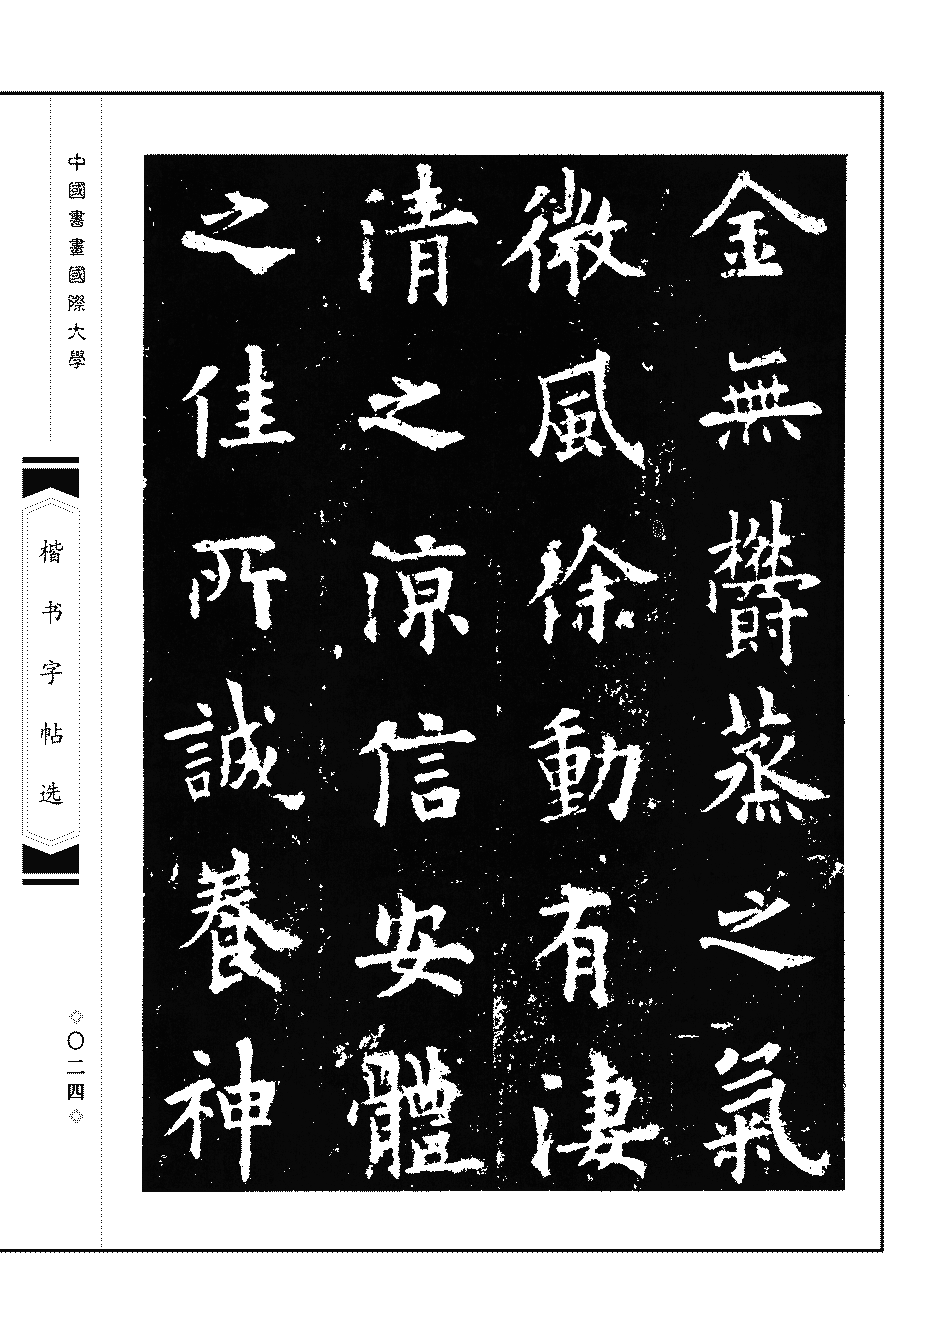 金無欝蒸之氣
微風徐動有淒
清之涼信安體
之佳所誠養神
中國書畫國際大學
楷书字帖选
◇〇二四◇